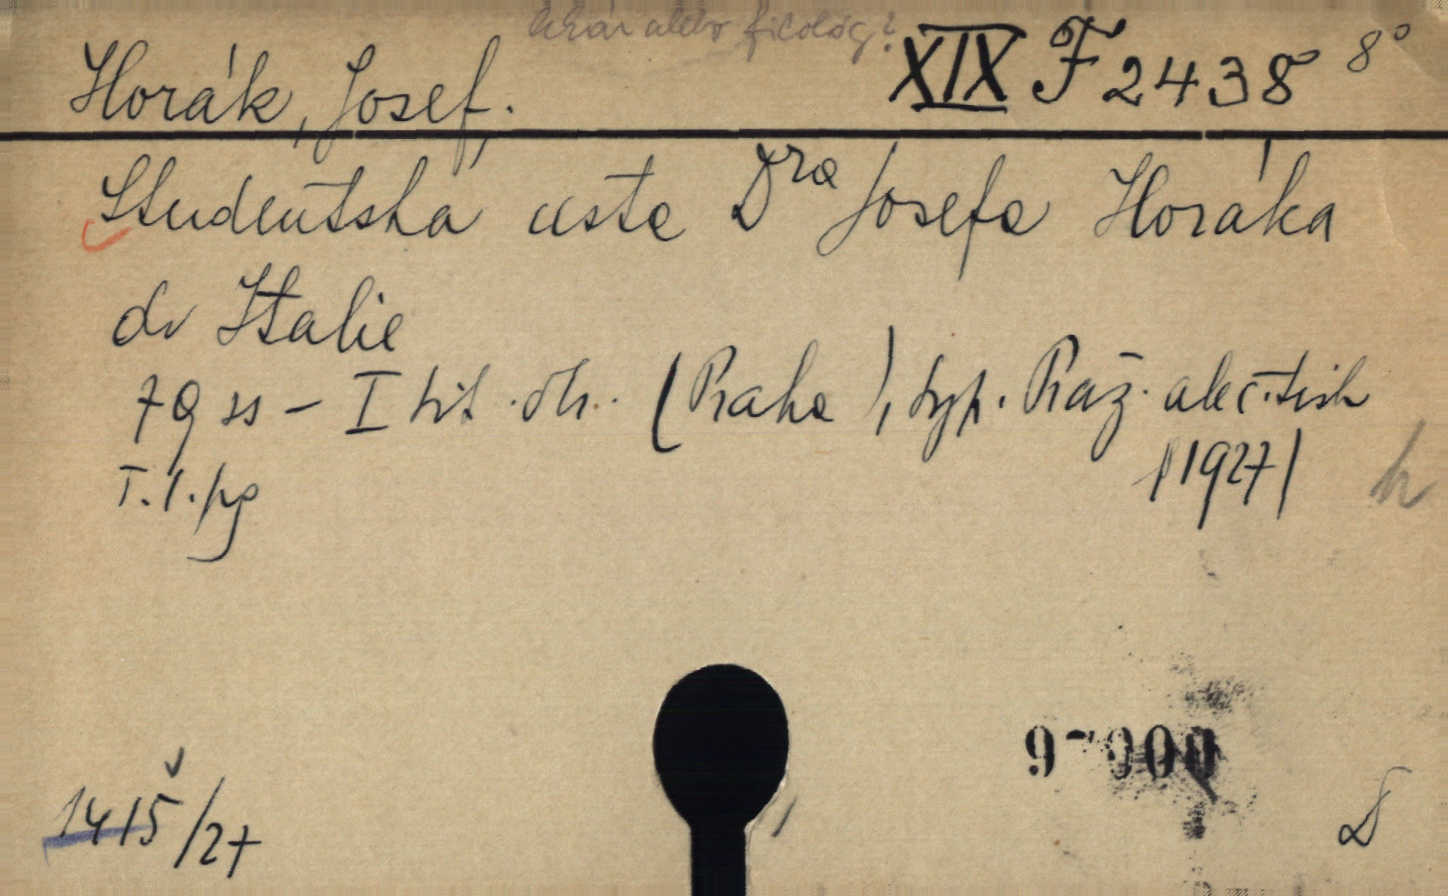 lekár alebo filológ?
Horák, Josef. XIX F 2438 8°
Studentská cesta Dra Josefa Horáka
do Italie
79 ss - I tit. ob. (Praha), typ. Praž. akc. tisk
T. 1. pg (1927)
h
1415/27
D